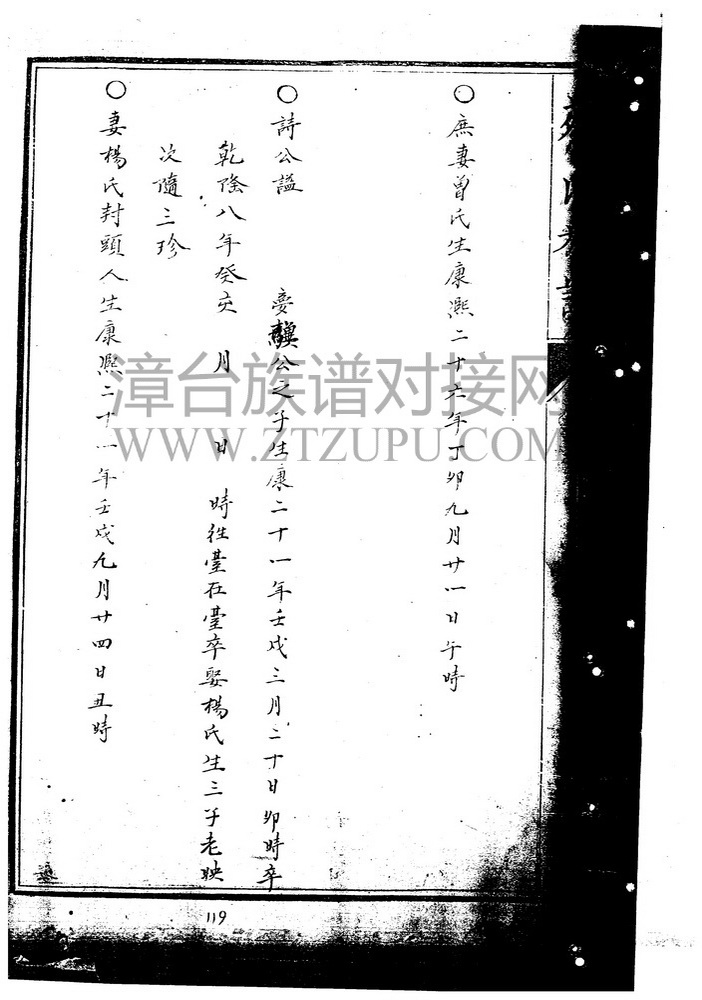 ○庶妻曾氏生康熙二十六年丁卯九月廿一日午時
○詩公謚 夢 公之子生康二十一年壬戌三月二十日卯時卒
乾隆八年癸亥 月 日 時往臺在臺卒娶楊氏生三子老映
次隨三珍
○妻楊氏封頭人生康熙二十一年壬戌九月廿四日丑時
119
漳台族谱对接网
WWW.ZTZUPU.COM